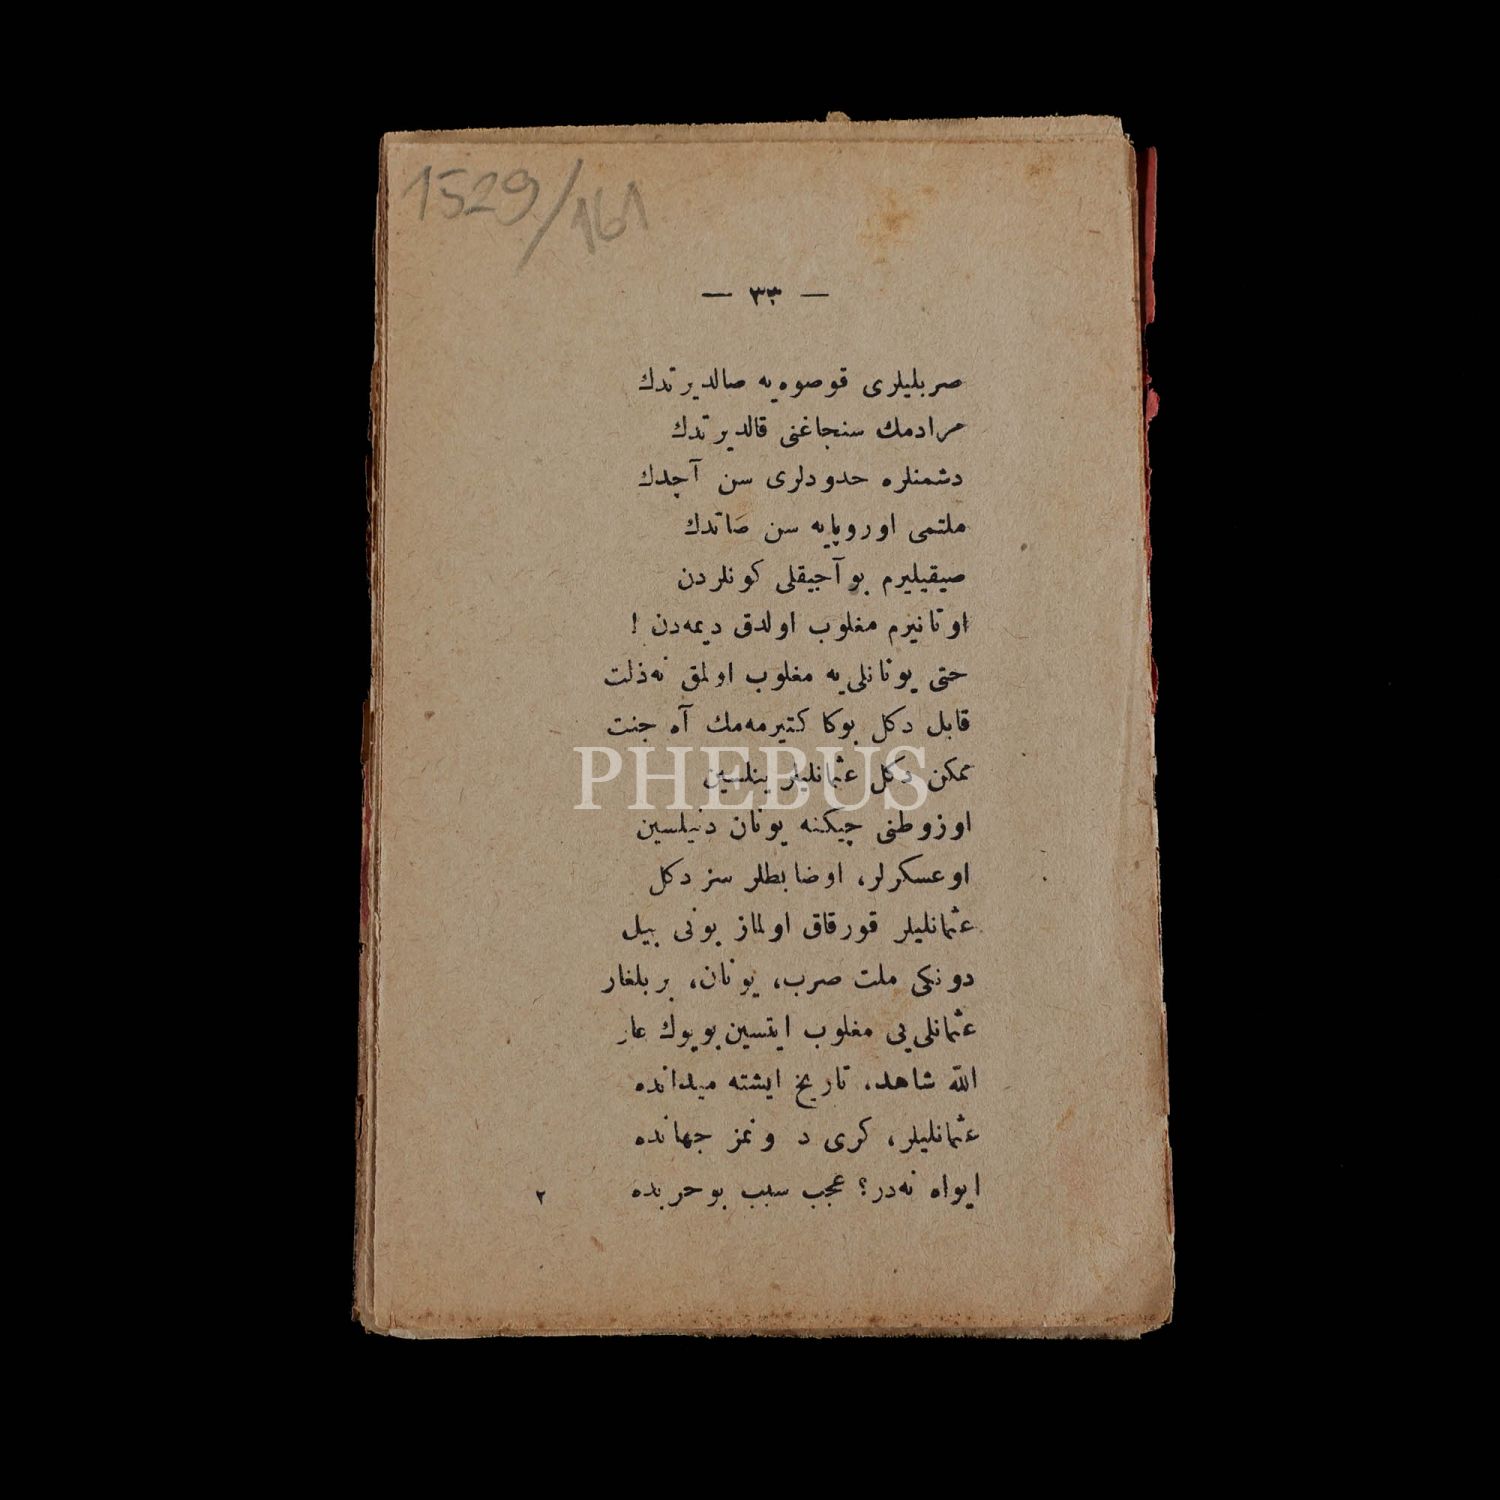 1529/161
— ٣٣ —
صربليلرى قوصوه‌يه صالديرتدك
مرادمك سنجاغنى قالديرتدك
دشمنلره حدودلرى سن آچدك
ملتمى اوروپايه سن صاتدك
صيقيليرم بو آجيقلى كونلردن
اوتانيرم مغلوب اولدق ديمه‌دن !
حتى يونانلى‌يه مغلوب اولمق نه‌ذلت
قابل دكل بوكا كتيرمه‌مك آه جنت
ممكن دكل عثمانليلر ينلسين
اوز وطنى چيكنه يونان دنيلسين
او عسكرلر، او ضابطلر سز دكل
عثمانليلر قورقاق اولماز بونى بيل
دونكى ملت صرب، يونان، بر بلغار
عثمانلى‌يى مغلوب ايتسين بويوك عار
الله شاهد، تاريخ ايشته ميدانده
عثمانليلر، كرى دونمز جهانده
ايواه نه‌در؟ عجب سبب بو حربده
٢
PHEBUS